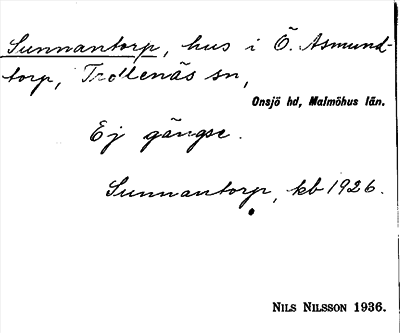 Sunnantorp, hus i Ö. Asmund-
torp, Trollenäs sn,
Onsjö hd, Malmöhus län.
Ej gängse.
Sunnantorp, kb 1926.
NILS NILSSON 1936.